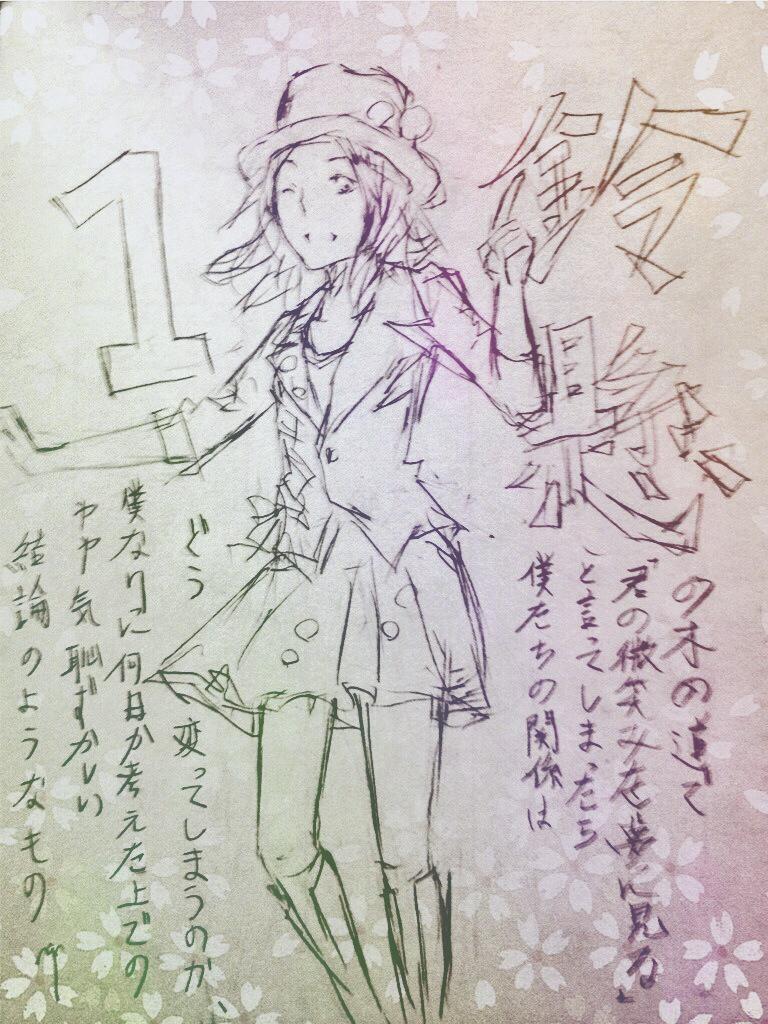 鈴懸
の木の道で
「君の微笑みを夢に見る」
と言ってしまったら
僕たちの関係は
1
どう変ってしまうのか、
僕なりに何日か考えた上での
やや気恥ずかしい
結論のようなもの